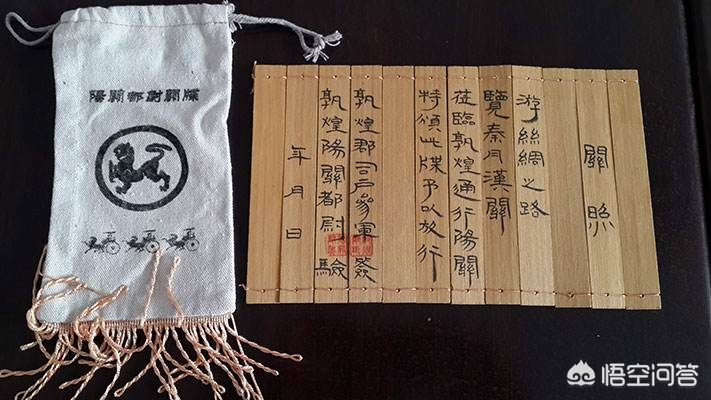 陽關都尉關牒
關照
游絲綢之路
覽秦月漢關
莅臨敦煌通行陽關
特頒此牒予以放行
敦煌郡司戶參軍簽
敦煌陽關都尉驗
年月日
悟空问答